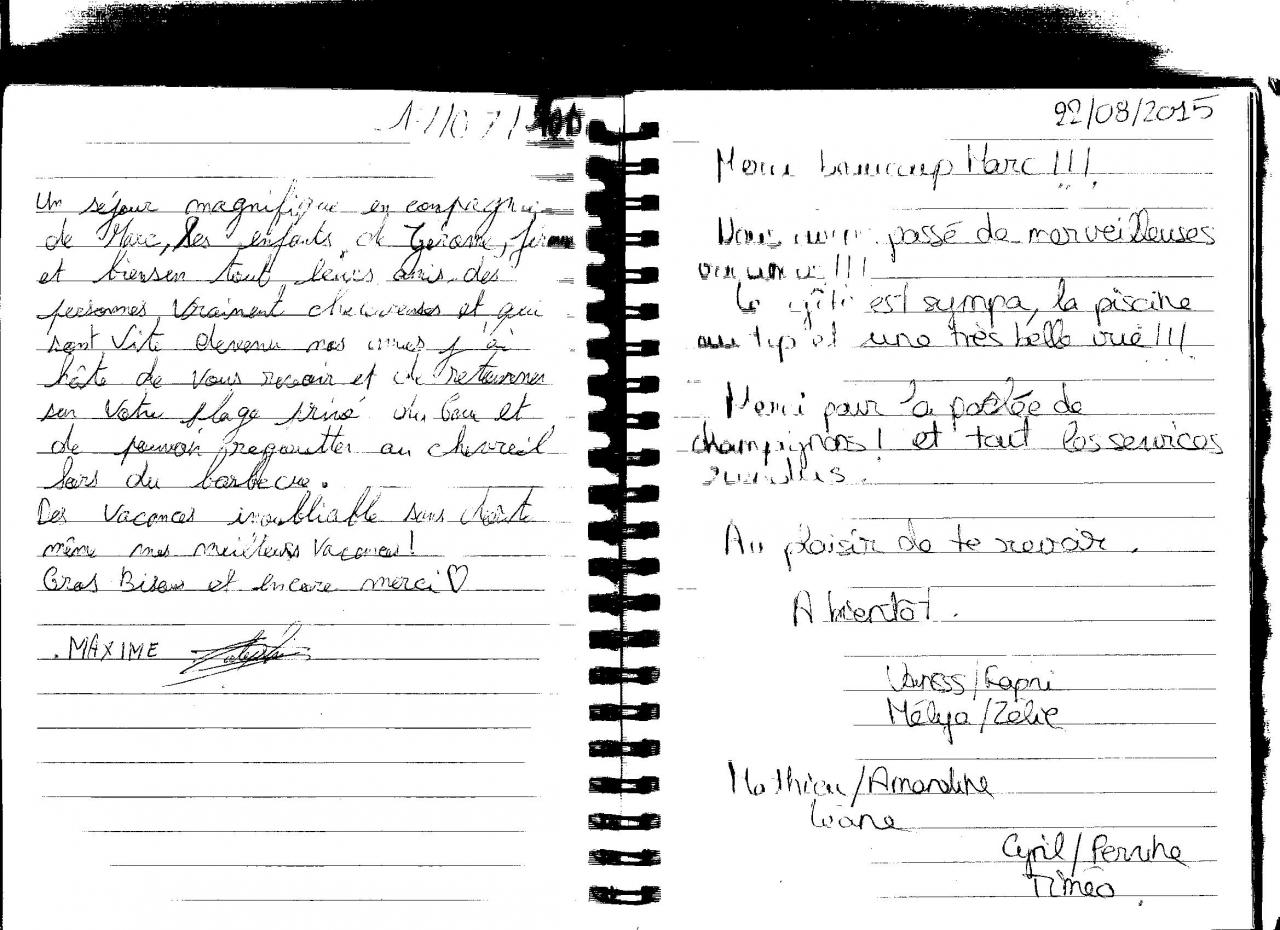 Un séjour magnifique en compagnie
de Marc, les enfants, de Gérome,
et biensen tout leurs amis des
personnes vraiment cheureuses et qui
sont vite devenu nos amies j'ai
hâte de vous revoir et de retourner
sur votre plage privé du lac et
de pouvoir regoutter au chevreil
lors du barbecue.
Des vacances inoubliable sans doute
même mes meilleurs vacances!
Gros Bisous et encore merci ♡
.MAXIME
22/08/2015
Merci beaucoup Marc !!!
Nous avons passé de merveilleuses
vacances !!!
Le gîte est sympa, la piscine
au top et une très belle vue !!!
Merci pour la poêlée de
champignons! et tout les services
rendus.
Au plaisir de te revoir.
A bientôt.
Vaness/Kapri
Mélya/Zélie
Mathieu/Amandine
Loane
Cyril/Perrine
Timéo